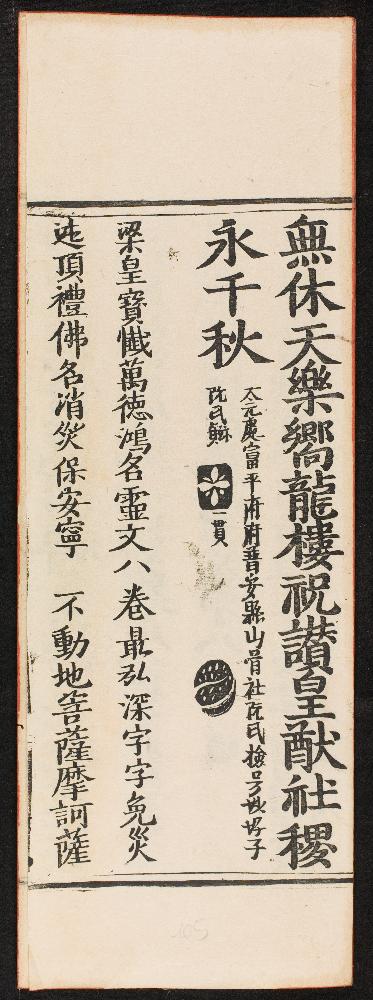 無休天樂嚮龍樓祝讃皇猷社稷
永千秋
太元處富平府府普安縣山骨社阮氏檢号妙好子
阮氏 一貫
梁皇寶懴萬徳鴻名靈文八卷最弘深字字免災
迍頂禮佛名消災保安寧 不動地菩薩摩訶薩
105